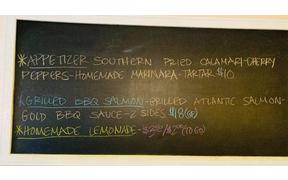 *APPETIZER SOUTHERN FRIED CALAMARI-CHERRY
PEPPERS-HOMEMADE MARINARA-TARTAR $10
*GRILLED BBQ SALMON-GRILLED ATLANTIC SALMON-
GOLD BBQ SAUCE-2 SIDES $18
*HOMEMADE LEMONADE- (TO GO)